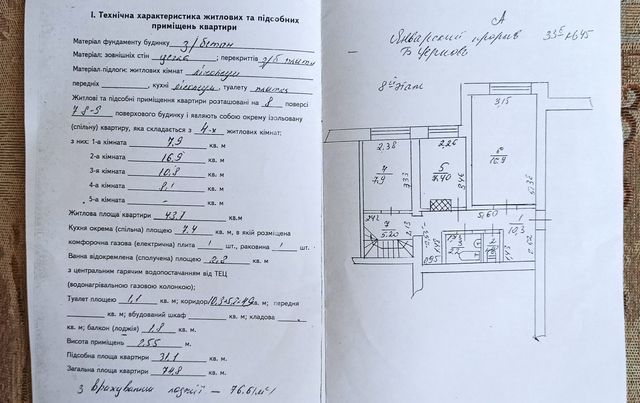 I. Технічна характеристика житлових та підсобних
приміщень квартири
Матеріал фундаменту будинку з/бетон
Матеріал: зовнішніх стін цегла ; перекриттів з/б плити
Матеріал підлоги: житлових кімнат лінолеум
передніх , кухні лінолеум, туалету плитка
Житлові та підсобні приміщення квартири розташовані на 8 поверсі
7-8-9 поверхового будинку і являють собою окрему ізольовану
(спільну) квартиру, яка складається з 4-х житлових кімнат:
з них: 1-а кімната 7.9 кв. м
2-а кімната 16.9 кв. м
3-я кімната 10.8 кв. м
4-а кімната 8.1 кв. м
5-а кімната - кв. м
Житлова площа квартири 43.7 кв.м
Кухня окрема (спільна) площею 7.4 кв. м, в якій розміщена
комфорочна газова (електрична) плита 1 шт., раковина 1 шт.
Ванна відокремлена (сполучена) площею 2.2 кв. м
з центральним гарячим водопостачанням від ТЕЦ
(водонагрівальною газовою колонкою);
Туалет площею 1,1 кв. м; коридор кв. м; передня
кв. м; вбудований шкаф кв. м; кладова
кв. м; балкон (лоджія) 1.8 кв. м.
Висота приміщень 2.55 м.
Підсобна площа квартири 31.1 кв. м.
Загальна площа квартири 74.8 кв. м.
з врахуванням лоджії — 76.61 м²
А
Январский прорив 33
8й этаж
3,15
2.38
2,26
4
7.9
3.33
5
7.40
3.46
6
16.9
2.42
7
5.20
2,13
5,60
1
10,3
0.95
3
2.2
2
1.43